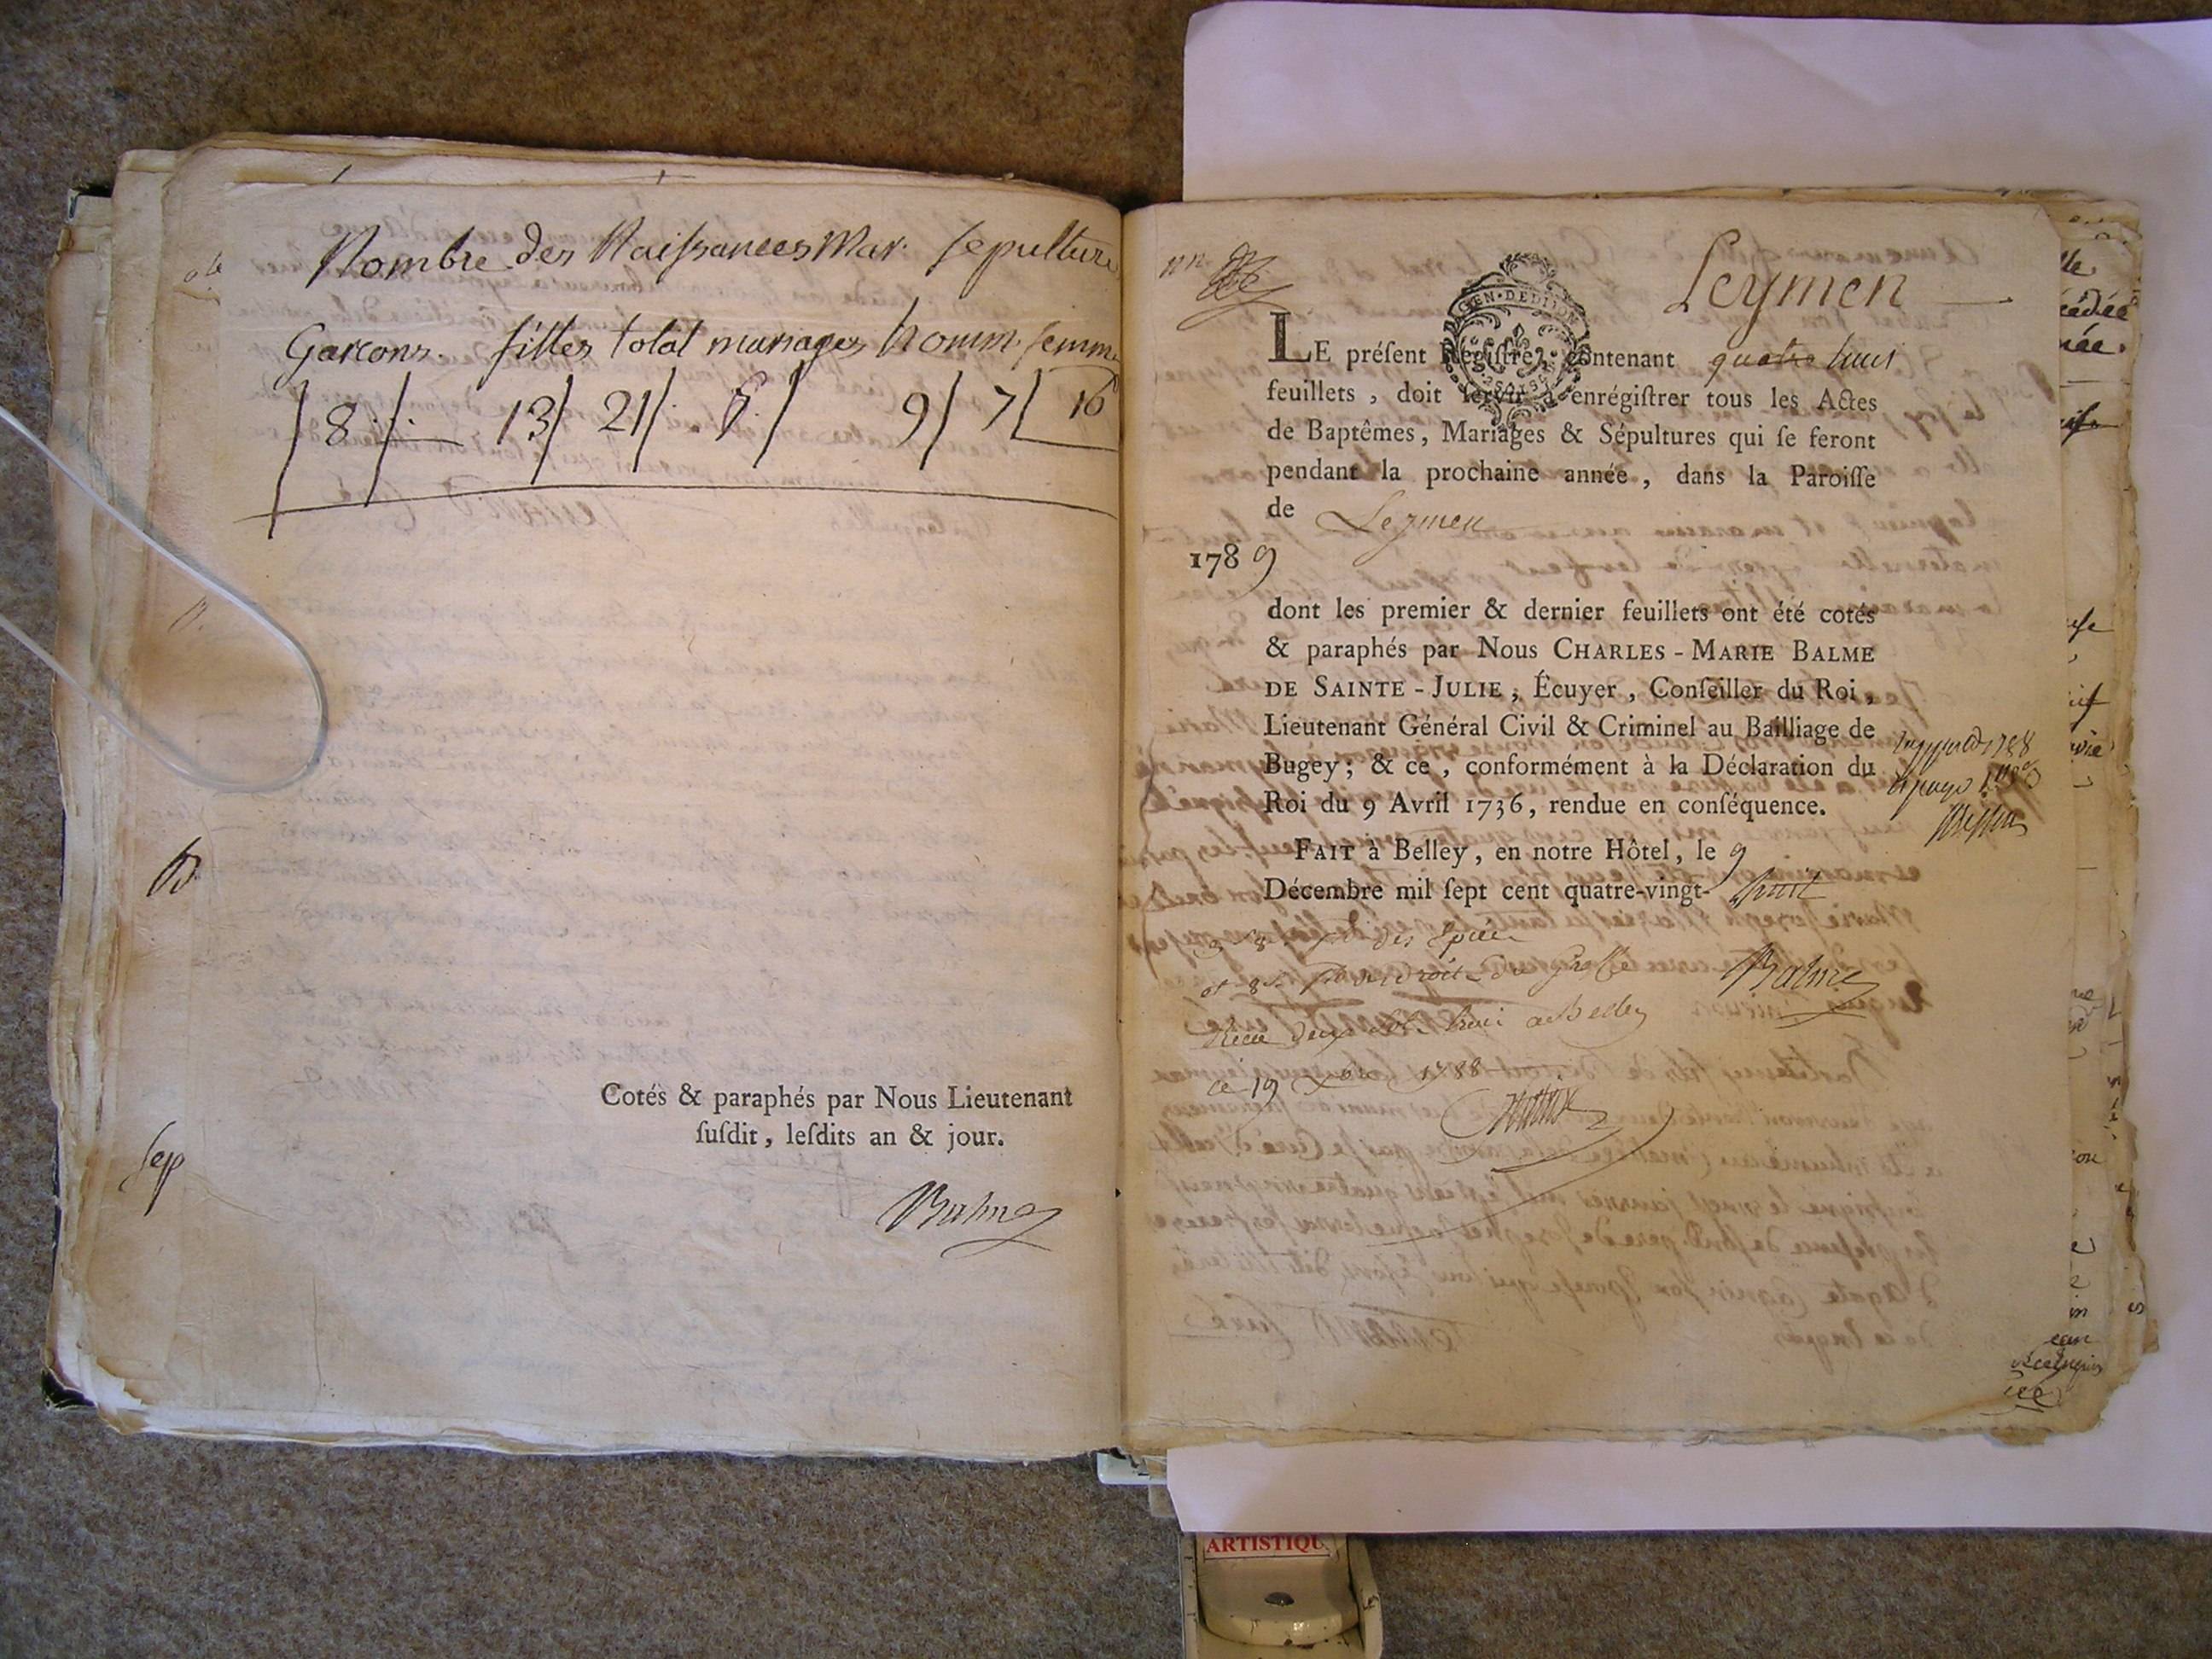 Nombre des Naissances Mar. sepulture
Garcons. filles total mariages homm. femme
8 13 21 9 7 16
Cotés & paraphés par Nous Lieutenant
ſuſdit, leſdits an & jour.
Balme
Sep
Leymen
GEN. DE DIJON
LE préſent Regiſtre, contenant quatre huit
feuillets, doit ſervir à enrégiſtrer tous les Actes
de Baptêmes, Mariages & Sépultures qui ſe feront
pendant la prochaine année, dans la Paroiſſe
de Leymen
1789
dont les premier & dernier feuillets ont été cotés
& paraphés par Nous CHARLES-MARIE BALME
DE SAINTE-JULIE, Écuyer, Conſeiller du Roi,
Lieutenant Général Civil & Criminel au Bailliage de
Bugey; & ce, conformément à la Déclaration du
Roi du 9 Avril 1736, rendue en conſéquence.
FAIT à Belley, en notre Hôtel, le 9
Décembre mil ſept cent quatre-vingt-huit
Balme
a Belley
ce 19 Xbre 1788
ARTISTIQU